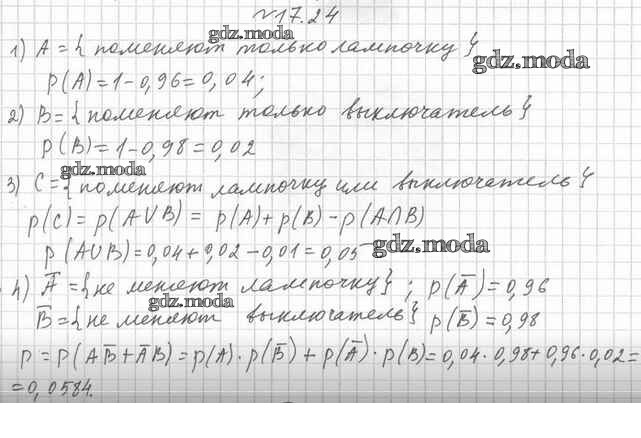 №17.24
gdz.moda
1) A = { поменяют только лампочку }
gdz.moda
p(A) = 1 - 0,96 = 0,04;
2) B = { поменяют только выключатель }
p(B) = 1 - 0,98 = 0,02
gdz.moda
3) C = { поменяют лампочку или выключатель }
p(C) = p(A∪B) = p(A) + p(B) - p(A∩B)
p(A∪B) = 0,04 + 0,02 - 0,01 = 0,05
gdz.moda
4) A̅ = { не меняют лампочку } ; p(A̅) = 0,96
gdz.moda
B̅ = { не меняют выключатель } p(B̅) = 0,98
p = p(AB̅ + A̅B) = p(A) · p(B̅) + p(A̅) · p(B) = 0,04 · 0,98 + 0,96 · 0,02 =
= 0,0584.